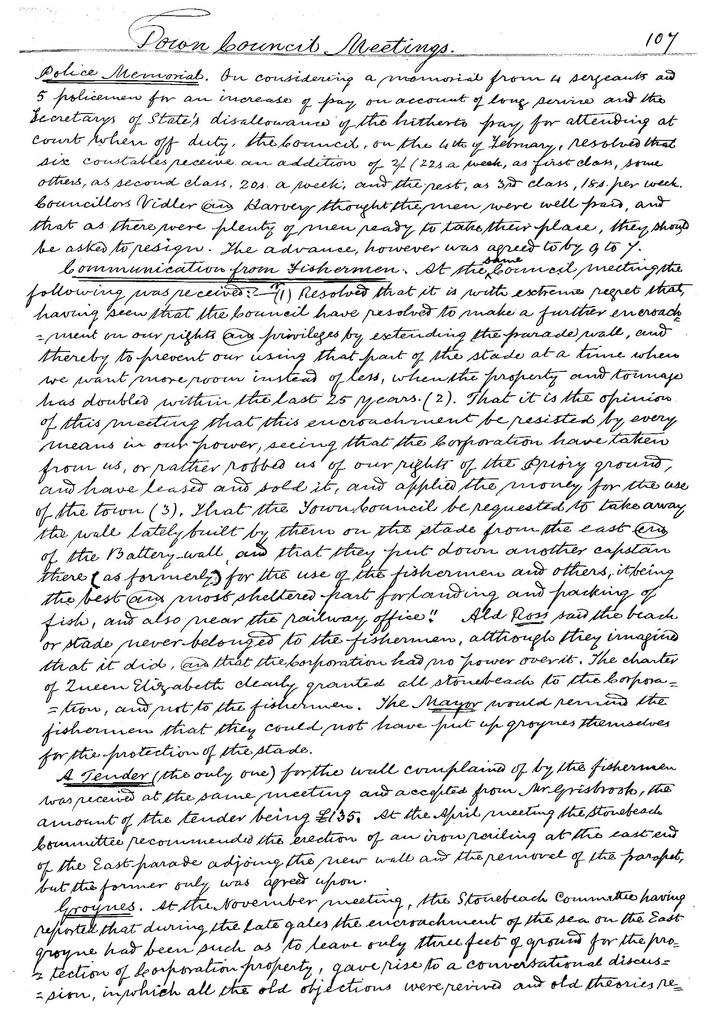 Town Council Meetings. 107
Police Memorial. On considering a memorial from 4 sergeants and
5 policemen for an increase of pay on account of long service and the
Secretarys of State's disallowance of the hitherto pay for attending at
court when off duty, the Council, on the 4th of February, resolved that
six constables receive an addition of 2/ (22s a week, as first class, some
others, as second class, 20s. a week, and the rest, as 3rd class, 18s. per week.
Councillors Vidler and Harvey thought the men were well paid, and
that as there were plenty of men ready to take their place, they should
be asked to resign. The advance, however was agreed to by 9 to 7.
Communication from Fishermen. At the same Council meeting the
following was received:—"(1) Resolved that it is with extreme regret that,
having seen that the Council have resolved to make a further encroach=
=ment on our rights and privileges by extending the parade wall, and
thereby to prevent our using that part of the stade at a time when
we want more room instead of less, when the property and tonnage
has doubled within the last 25 years. (2). That it is the opinion
of this meeting that this encroachment be resisted by every
means in our power, seeing that the Corporation have taken
from us, or rather robbed us of our rights of the Priory ground,
and have leased and sold it, and applied the money for the use
of the town (3). That the Town Council be requested to take away
the wall lately built by them on the stade from the east end
of the Battery wall, and that they put down another capstan
there (as formerly) for the use of the fishermen and others, it being
the best and most sheltered part for landing and packing of
fish, and also near the railway office!! Ald Ross said the beach
or stade never belonged to the fishermen, although they imagined
that it did, and that the Corporation had no power over it. The charter
of Queen Elizabeth clearly granted all stonebeach to the Corpora=
=tion, and not to the fishermen. The Mayor would remind the
fishermen that they could not have put up groynes themselves
for the protection of the stade.
A Tender (the only one) for the wall complained of by the fishermen
was received at the same meeting and accepted from Mr Grisbrook, the
amount of the tender being £135. At the April meeting the Stonebeach
Committee recommended the erection of an iron railing at the east end
of the East-parade adjoing the new wall and the removal of the parapet,
but the former only was agreed upon.
Groynes. At the November meeting, the Stonebeach Committee having
reported that during the late gales the encroachment of the sea on the East
groyne had been such as to leave only three feet of ground for the pro=
=tection of Corporation property, gave rise to a conversational discus=
=sion, in which all the old objections were revived and old theories re=